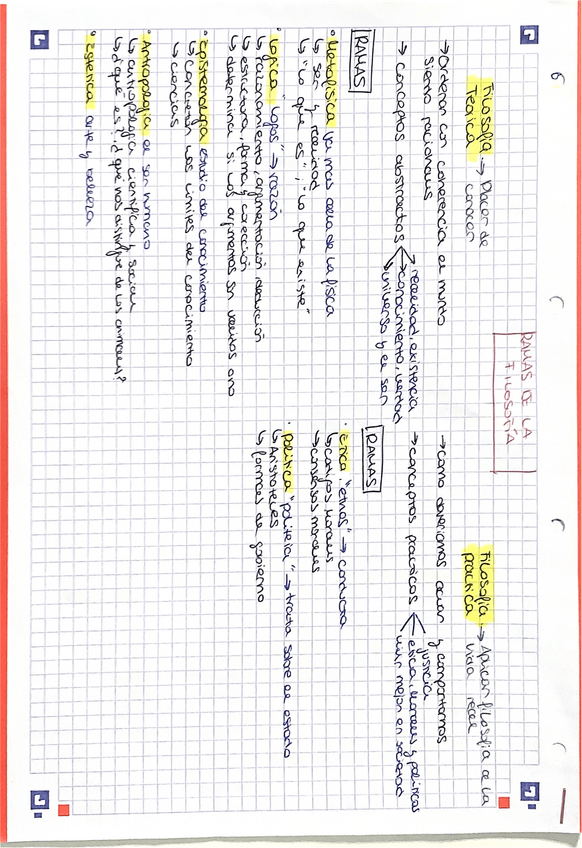 6
RAMAS DE LA
FILOSOFÍA
Filosofía
Teórica → Placer de
conocer
→ Ordenar con coherencia el mundo
siendo racionales
→ conceptos abstractos
realidad, existencia
→ conocimiento, verdad
universo y el ser
RAMAS
· Metafísica ya mas alla de la física
↳ ser y realidad
↳ "lo que es", "lo que existe"
· Lógica "logos" → razón
↳ razonamiento, argumentación, deducción
↳ estructura, forma y corrección
↳ determina si los argumentos son validos o no
· Epistemología estudio del conocimiento
↳ concretan los límites del conocimiento
↳ ciencias
· Antropología el ser humano
↳ antropología científica y social
↳ ¿que es? ¿que nos distingue de los animales?
· Estética arte y belleza
Filosofía
práctica → Aplicar filosofía a la
vida real
→ como deberíamos actuar y comportarnos
→ conceptos prácticos
justicia
ética, morales y políticas
vivir mejor en sociedad
RAMAS
· Ética "ethos" → conducta
↳ campos morales
↳ consensos morales
· política "politeia" → trata sobre el estado
↳ Aristóteles
↳ formas de gobierno